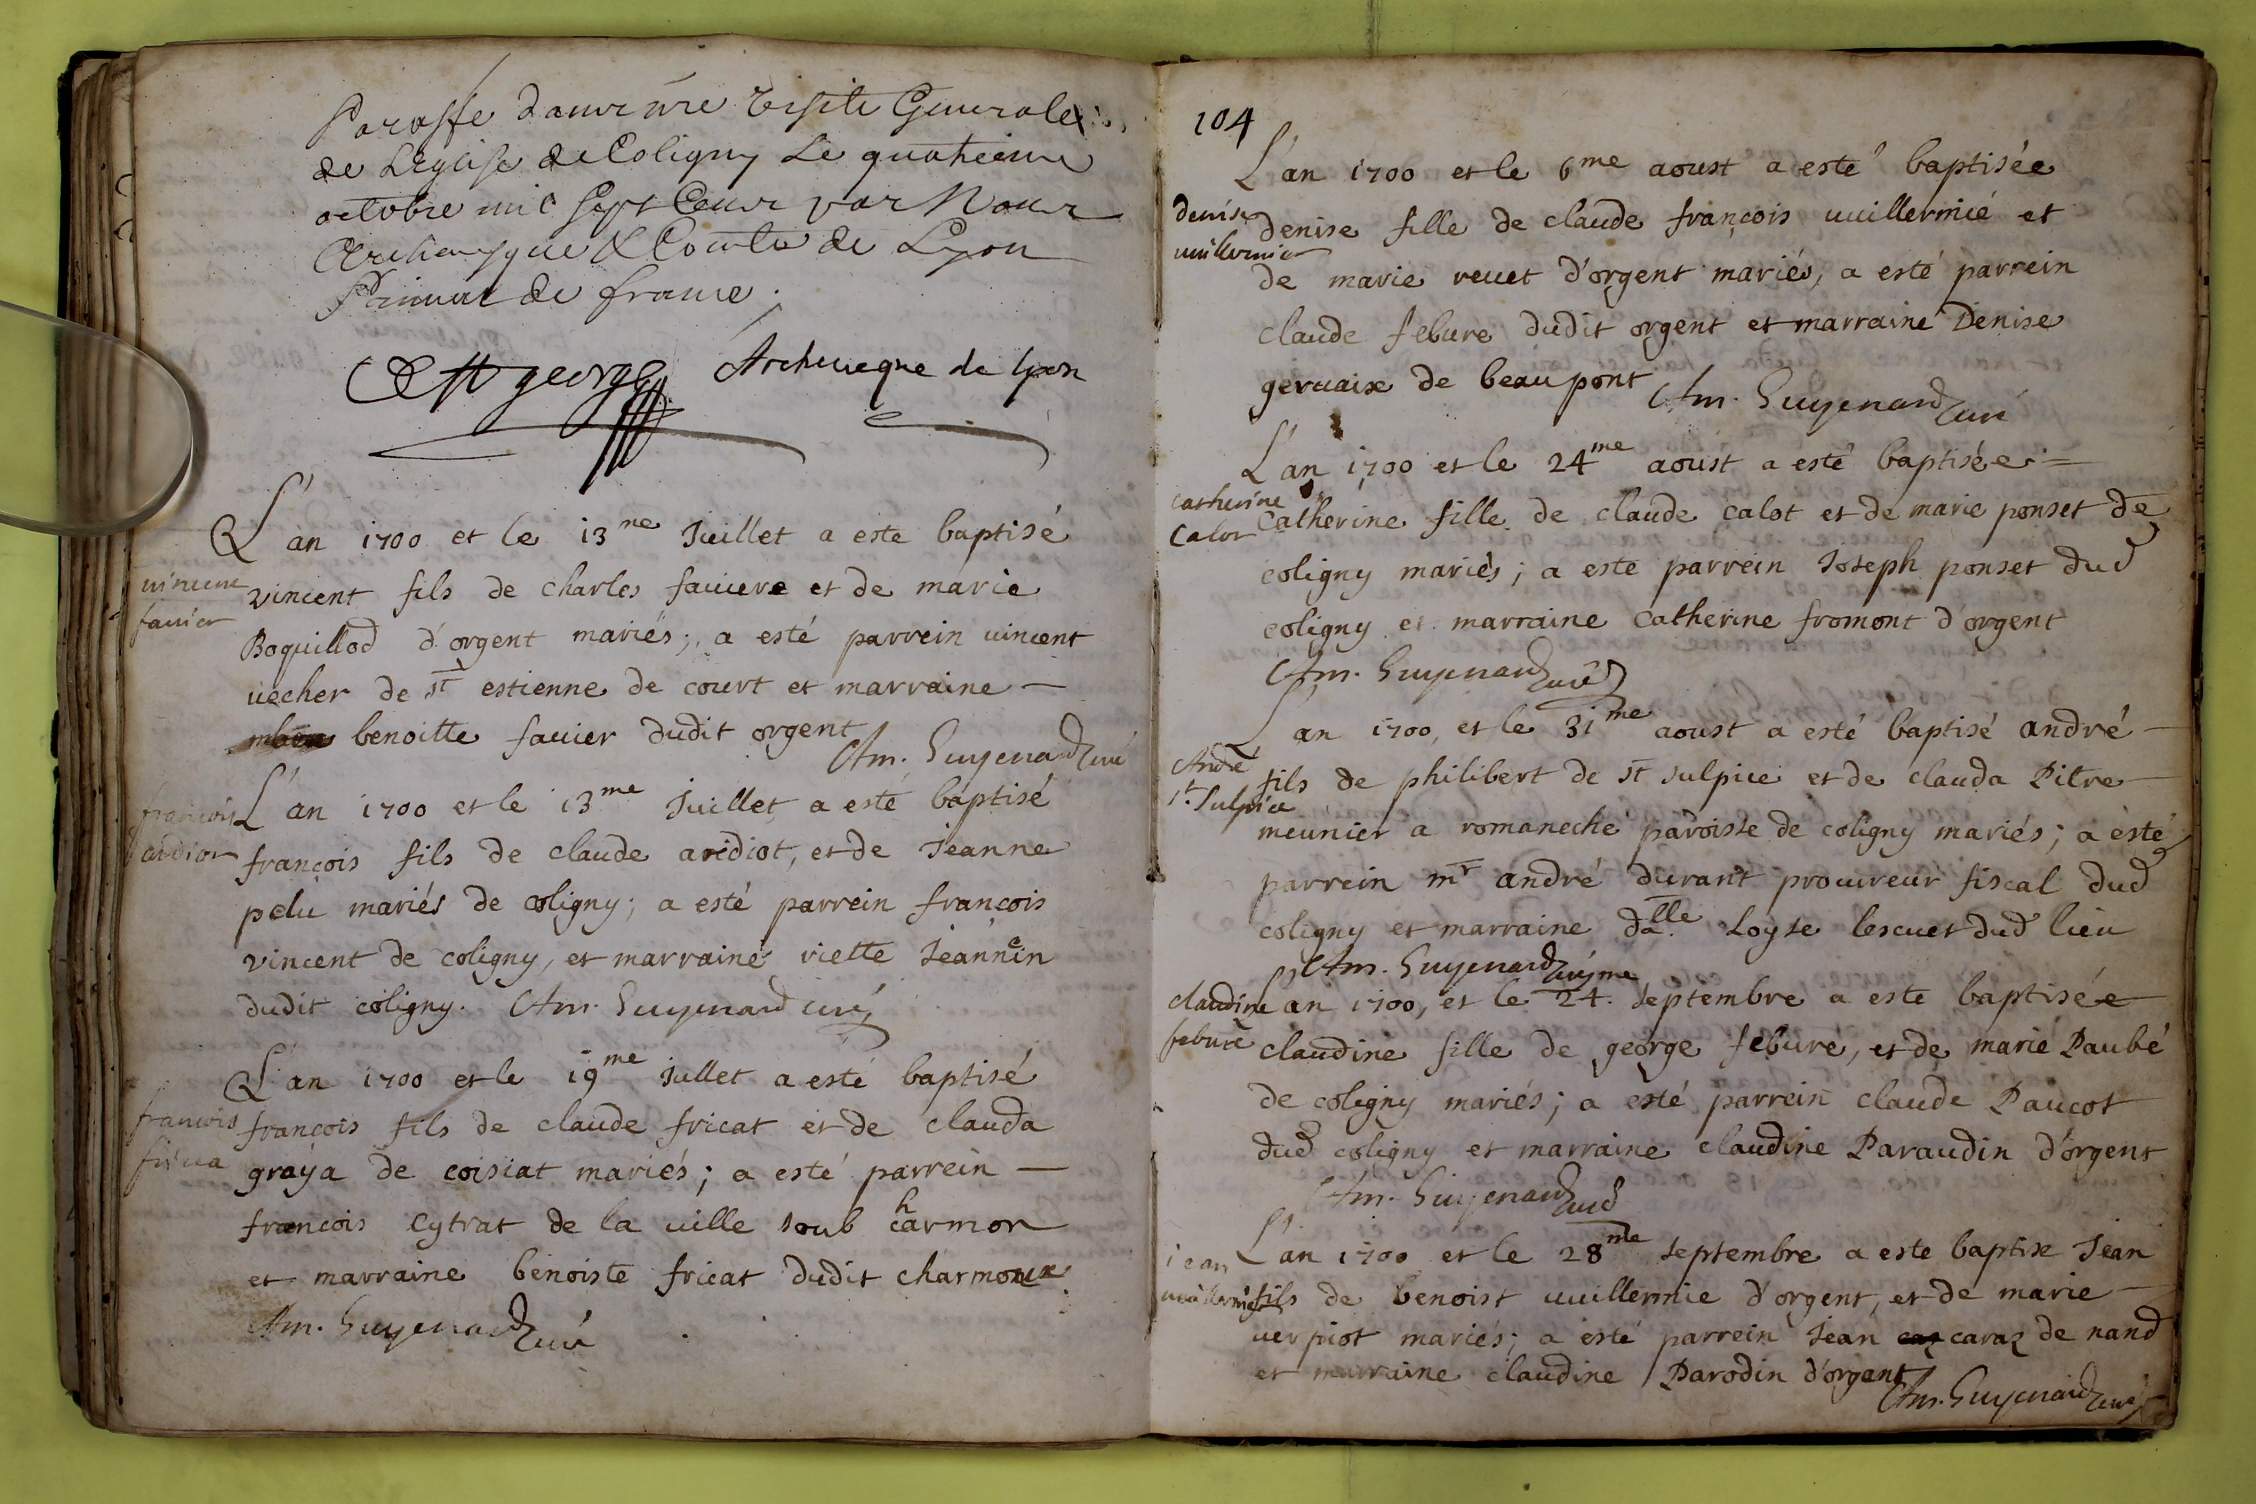 Paraffé dans nre visite Generale
de Leglise de Coligny Le quatrieme
octobre mil Sept Cens par Nous
Archevesque & Comte de Lyon
Primat de france.
C de St george Archeveque de lyon
L'an 1700 et le 13me Juillet a esté baptisé
vincent
favier
vincent fils de charles faviere et de marie
Boquillod d'orgent mariés; a esté parrein vincent
vecher de st estienne de court et marraine
benoitte favier dudit orgent
Am. Guyenard curé
L'an 1700 et le 13me Juillet a esté baptisé
francois
ardiot
françois fils de claude aridiot, et de Jeanne
pelu mariés de coligny; a esté parrein françois
vincent de coligny, et marraine viette Jeannein
dudit coligny. Am. Guyenard curé
L'an 1700 et le 19me Jullet a esté baptisé
francois
frica
françois fils de claude fricat et de clauda
graÿa de coisiat mariés; a esté parrein
françois Cytrat de la ville soub charmon
et marraine benoiste fricat dudit charmoux
Am. Guyenard curé
104
L'an 1700 et le 6me aoust a esté baptisée
denise
vuillermier
denise fille de claude françois vuillermié et
de marie revet d'orgent mariés, a esté parrein
claude febure dudit orgent et marraine Denise
gervaise de beaupont Am. Guyenard curé
L'an 1700 et le 24me aoust a esté baptisée
catherine
Calot
Catherine fille de claude calot et de marie ponset de
coligny mariés; a esté parrein Joseph ponset dud
coligny et marraine Catherine fromont d'orgent
Am. Guyenard curé
L'an 1700, et le 31me aoust a esté baptisé andré
André
st. Sulpice
fils de philibert de st sulpice et de clauda Pitre
meunier a romaneche paroisse de coligny mariés; a esté
parrein mr andré durant procureur fiscal dud
coligny et marraine dalle Loyse lescuet dud lieu
Am. Guyenard curé
claudine
febure
L'an 1700, et le 24.me septembre a esté baptisée
claudine fille de george febure, et de marie Paubé
de coligny mariés; a esté parrein claude Paucot
dud coligny et marraine claudine Paraudin d'orgent
Am. Guyenard curé
L'an 1700 et le 28me septembre a esté baptise Jean
jean
vuillermier
fils de benoist vuillermie d'orgent, et de marie
verpiot mariés; a esté parrein Jean caraz de nand
et marraine claudine Parodin d'orgent
Am. Guyenard curé